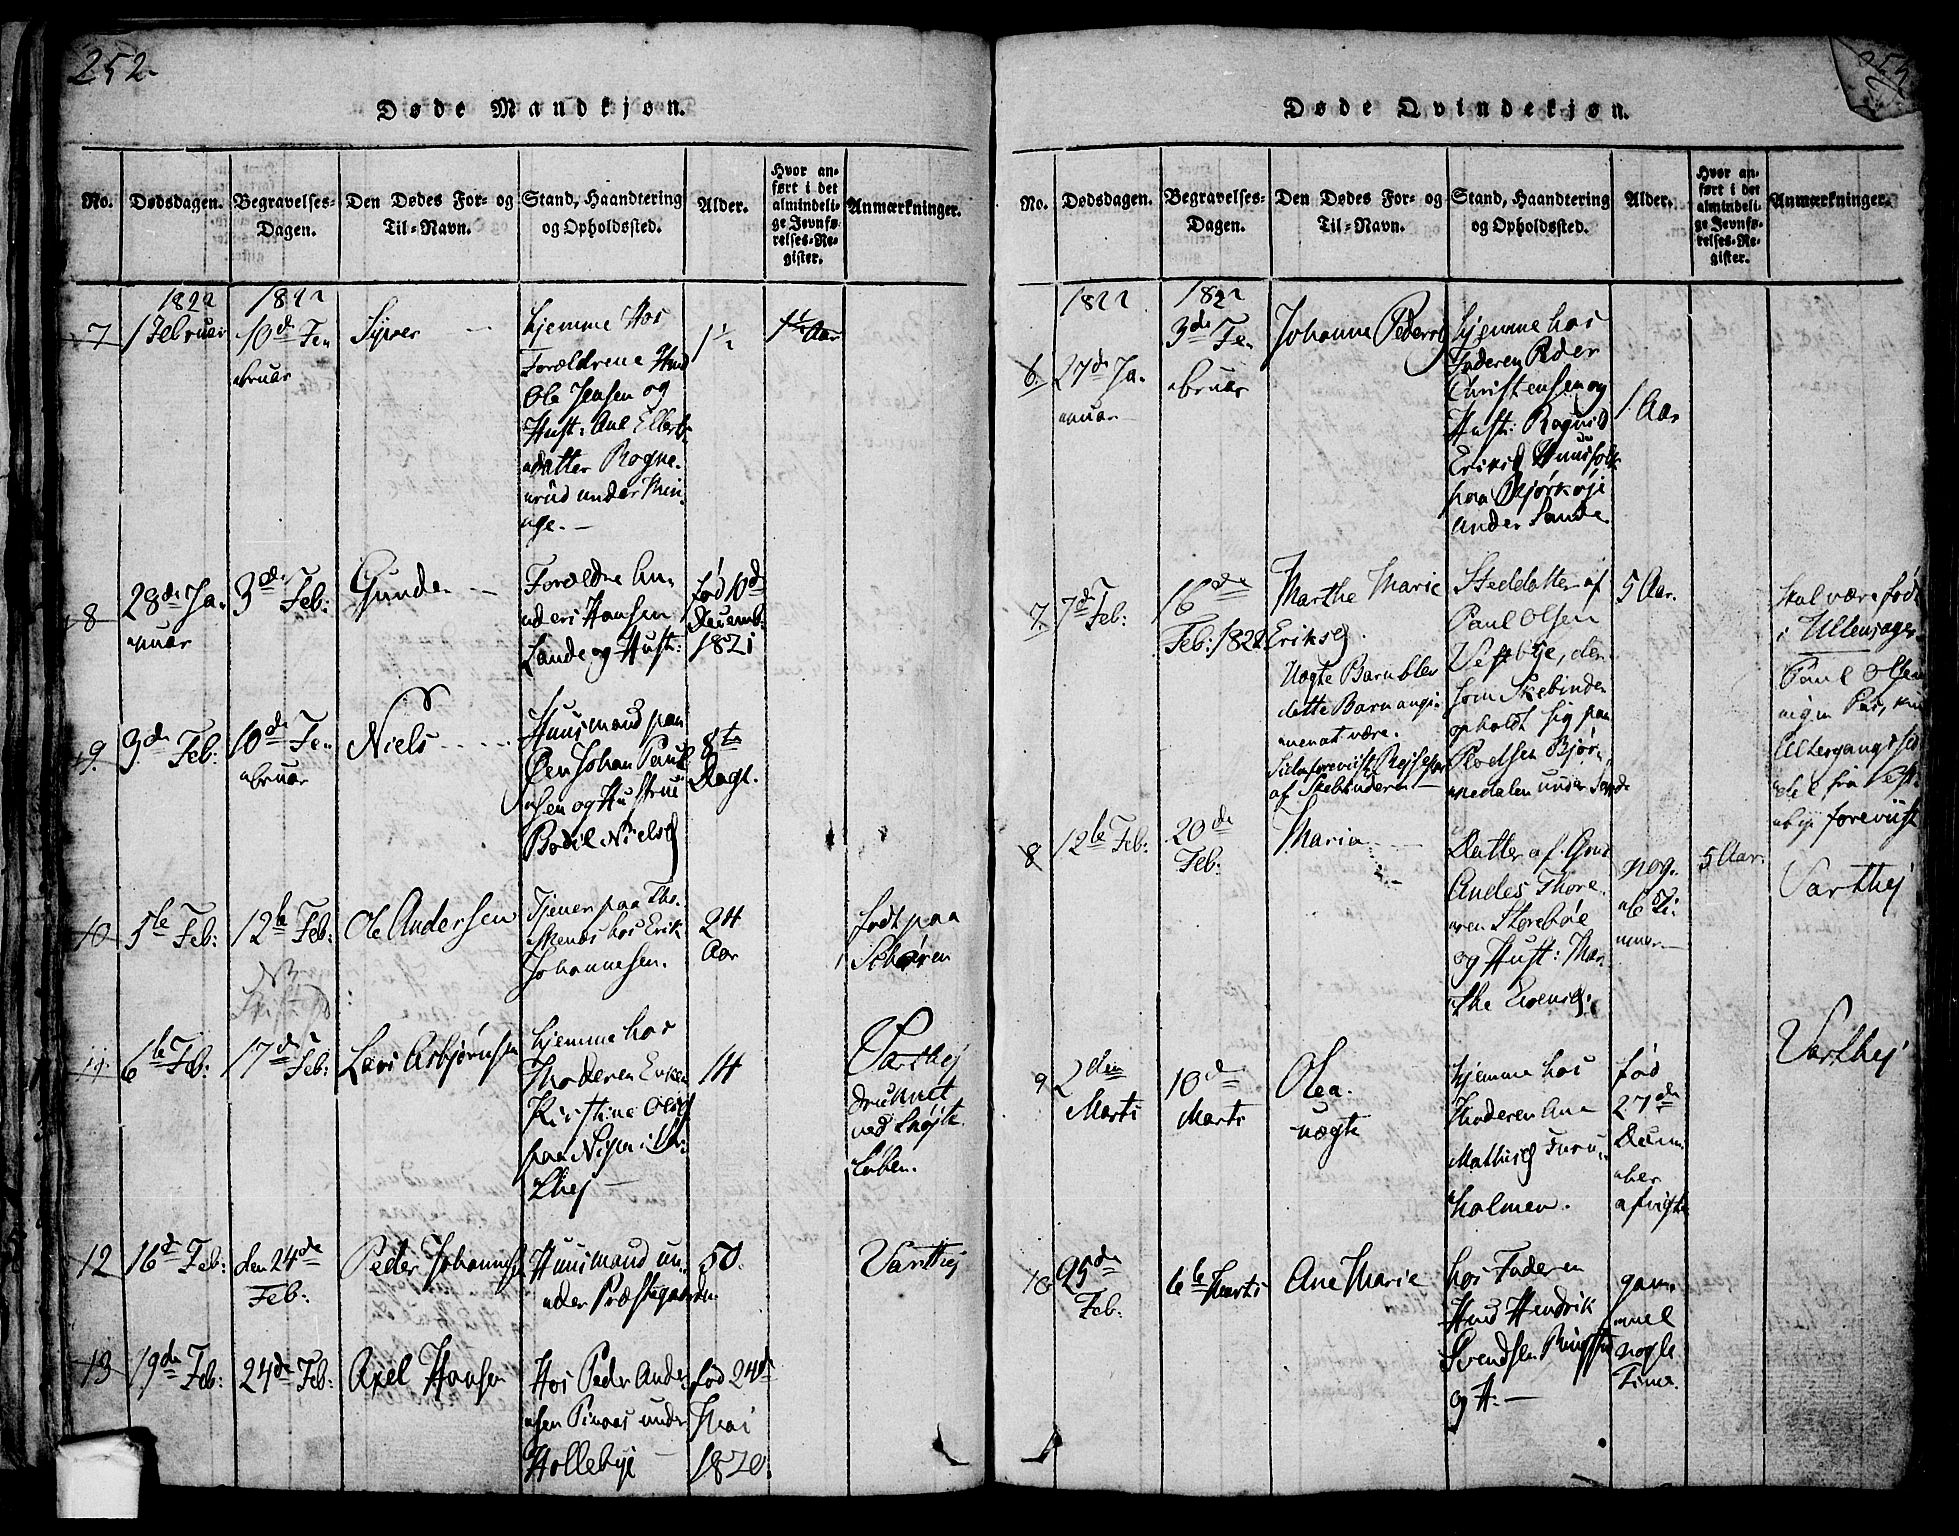 252.
Døde Mandkjøn.
No. Dødsdagen. Begravelses-Dagen. Den Dødes For- og Til-Navn. Stand, Haandtering og Opholdssted. Alder. Hvor anført i det almindelige Jevnførelses-Register. Anmærkninger.
1822 1822
7 1 Februar 10de Fe-
bruar
Syver
hjemme hos
Forældrene
Ole Jensen og
Hust: Ane
datter Rogne-
rud under Min-
ge. —
1½
1½ Aar
8 28de Ja-
nuar
3de Feb:
Gunder
Forældre An-
ders Hansen
Lande og Hust:
fød 10de
Decemb:
1821
9. 3de Feb:
10de Fe-
bruar
Niels
Huusmand paa
Øen Johan Paul-
sen og Hustrue
Bodil Nielsd
8te
Dage.
10 5te Feb:
12te Feb:
Ole Andersen
Tjener paa
hos Erik
Johannesen.
24
Aar
født paa
11. 6te Feb:
17de Feb:
Lars Asbjørnsen
hjemme hos
Moderen Enken
Kirstine Olsd
paa
14
Varthej
druknet
ved
12 16de Feb:
den 24de
Feb:
Peder Johannes
Huusmand un-
der Præstegaarden
50.
Varthej
13 19de Feb:
24de Feb:
Axel Hansen
Hos Peder Ander-
sen under
Hollebye
fød 24de
Mai
1820
253
Døde Qvindekjøn.
No. Dødsdagen. Begravelses-Dagen. Den Dødes For- og Til-Navn. Stand, Haandtering og Opholdssted. Alder. Hvor anført i det almindelige Jevnførelses-Register. Anmærkninger.
1822 1822
6. 27de Ja-
nuar
3de Fe-
bruar
Johanne Pedersd
hjemme hos
Faderen Peder
Christensen og
Hust: Ragnild
Eriksd Huusfolk
paa Bjørkøje
under Sande
1. Aar
7. 7de Feb:
16de
Feb: 1822
Marthe Marie
Eriksd.
Uægte Barn blev
dette Barn angi-
ven at være.
Steddatter af
Paul Olsen
Vestbye, den
som Skebinder
opholdt sig paa
Bjør-
nedalen under
5 Aar.
Skal være fød
i Ullensager
Paul Olsen
forevist
8 12te Feb:
20de
Feb:
Maria
Datter af Gmd
Anders Thore-
sen Storebøe
og Hust: Mar-
the Evensd.
nog-
le Ti-
mer
5 Aar.
Varthej
9 2den
Marts
10de
Marts
Olea.
uægte
hjemme hos
Moderen Ane
Mathisd Furu-
holmen.
fød
27de
Decem-
ber
afvigte
Varthej
10 25de
Feb:
6te Marts
Ane Marie
hos Faderen
Hmd Hendrik
Svendsen
og H: —
gam-
mel
nogle
Timer.